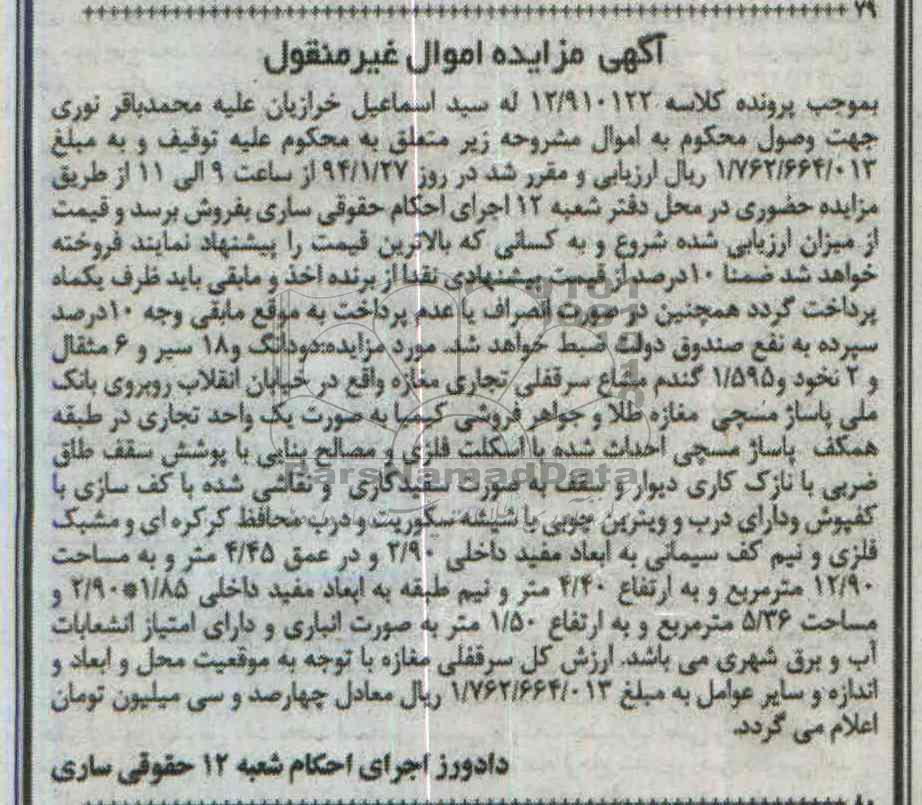 ۷۹
آگهی مزایده اموال غیرمنقول
بموجب پرونده کلاسه ۱۲/۹۱۰۱۲۲ له سید اسماعیل خرازیان علیه محمدباقر نوری
جهت وصول محکوم به اموال مشروحه زیر متعلق به محکوم علیه توقیف و به مبلغ
۱/۷۶۲/۶۶۴/۰۱۳ ریال ارزیابی و مقرر شد در روز ۹۴/۱/۲۷ از ساعت ۹ الی ۱۱ از طریق
مزایده حضوری در محل دفتر شعبه ۱۲ اجرای احکام حقوقی ساری بفروش برسد و قیمت
از میزان ارزیابی شده شروع و به کسانی که بالاترین قیمت را پیشنهاد نمایند فروخته
خواهد شد ضمنا ۱۰درصد از قیمت پیشنهادی نقدا از برنده اخذ و مابقی باید ظرف یکماه
پرداخت گردد همچنین در صورت انصراف یا عدم پرداخت به موقع مابقی وجه ۱۰درصد
سپرده به نفع صندوق دولت ضبط خواهد شد. مورد مزایده:دودانگ و۱۸ سیر و ۶ مثقال
و ۲ نخود و۱/۵۹۵ گندم مشاع سرقفلی تجاری مغازه واقع در خیابان انقلاب روبروی بانک
ملی پاساژ مسچی مغازه طلا و جواهر فروشی کسیا به صورت یک واحد تجاری در طبقه
همکف پاساژ مسچی احداث شده با اسکلت فلزی و مصالح بنایی با پوشش سقف طاق
ضربی با نازک کاری دیوار و سقف به صورت سفیدکاری و نقاشی شده با کف سازی با
کفپوش ودارای درب و ویترین چوبی با شیشه سکوریت و درب محافظ کرکره ای و مشبک
فلزی و نیم کف سیمانی به ابعاد مفید داخلی ۲/۹۰ و در عمق ۴/۴۵ متر و به مساحت
۱۲/۹۰ مترمربع و به ارتفاع ۴/۴۰ متر و نیم طبقه به ابعاد مفید داخلی ۱/۸۵*۲/۹۰ و
مساحت ۵/۳۶ مترمربع و به ارتفاع ۱/۵۰ متر به صورت انباری و دارای امتیاز انشعابات
آب و برق شهری می باشد. ارزش کل سرقفلی مغازه با توجه به موقعیت محل و ابعاد و
اندازه و سایر عوامل به مبلغ ۱/۷۶۲/۶۶۴/۰۱۳ ریال معادل چهارصد و سی میلیون تومان
اعلام می گردد.
دادورز اجرای احکام شعبه ۱۲ حقوقی ساری
ParsNamadData